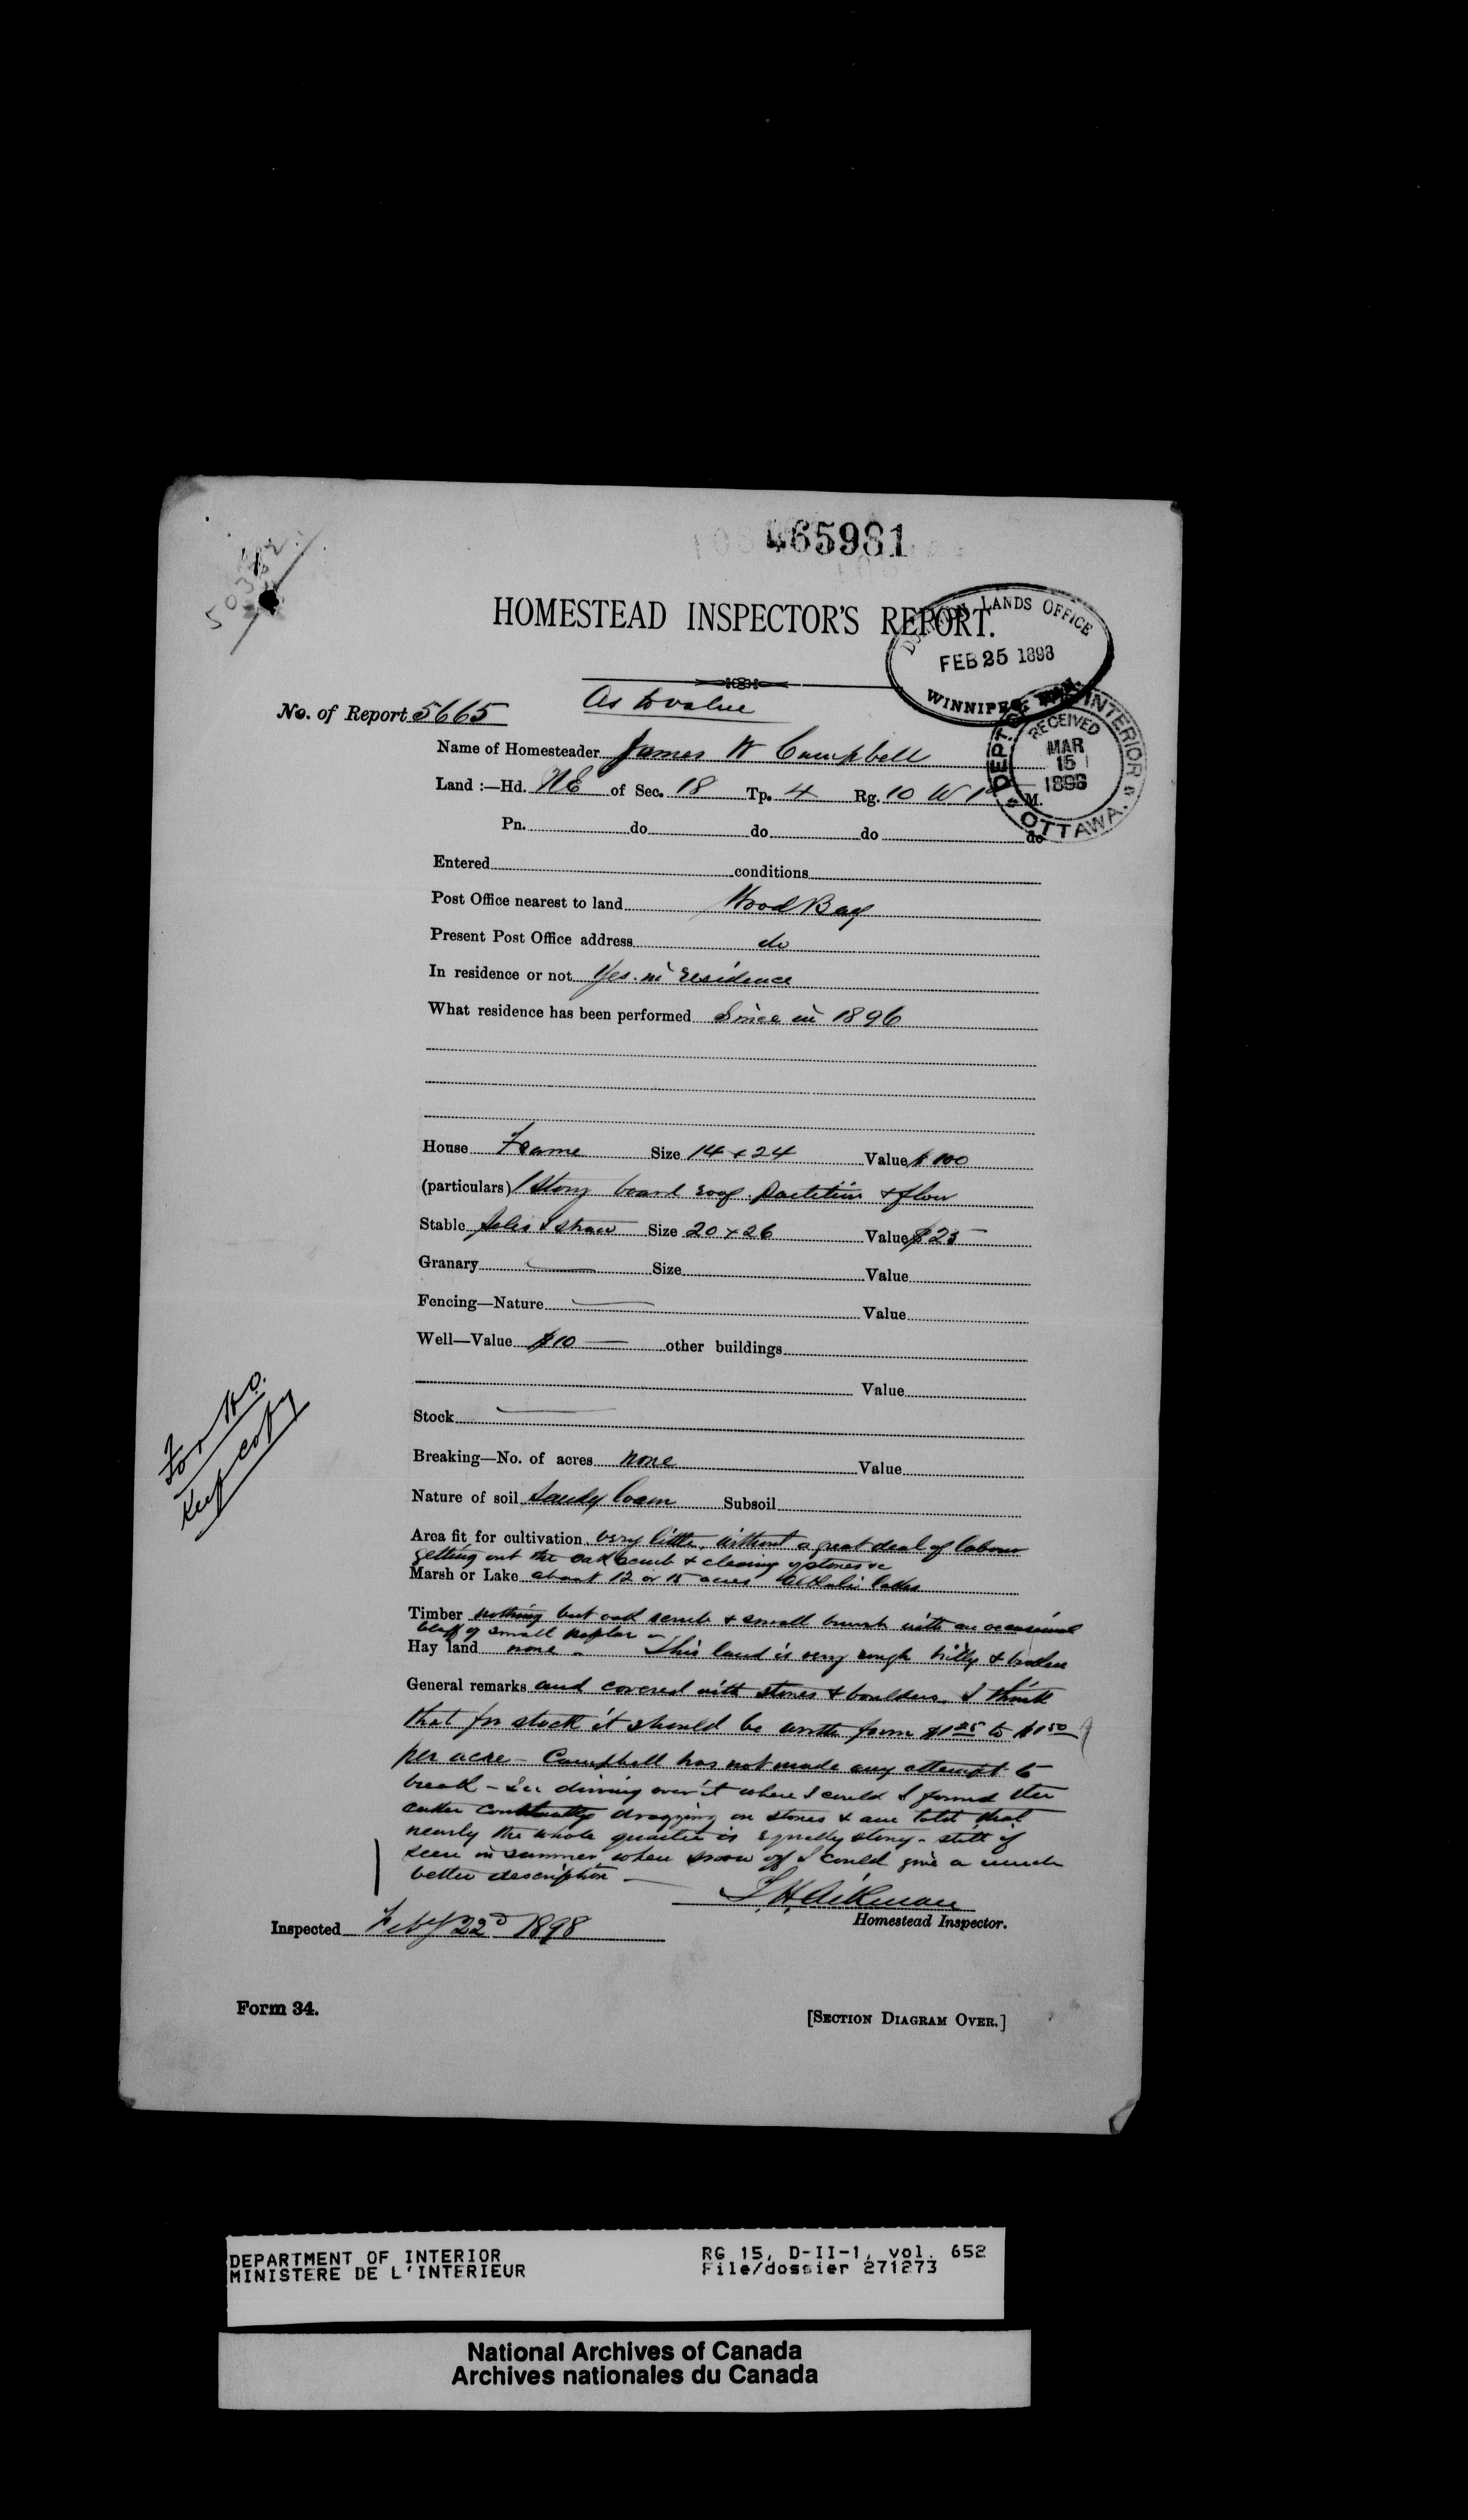 465981
HOMESTEAD INSPECTOR'S REPORT.
DOMINION LANDS OFFICE
FEB 25 1898
WINNIPEG, MAN.
As to value
No. of Report 5665
DEPT. OF INTERIOR
RECEIVED
MAR
15
1898
OTTAWA.
Name of Homesteader James W Campbell
Land :—Hd. NE of Sec. 18 Tp. 4 Rg. 10 W 1st M.
Pn. do do do do
Entered conditions
Post Office nearest to land Wood Bay
Present Post Office address do
In residence or not Yes. in residence
What residence has been performed Since in 1896
House Frame Size 14 x 24 Value $100
(particulars) 1 Story board roof. Partition & floor
Stable Poles & straw Size 20 x 26 Value $25 —
Granary — Size Value
Fencing—Nature — Value
Well—Value $10 — other buildings
Value
Stock —
Breaking—No. of acres none Value
Nature of soil Sandy loam Subsoil
Area fit for cultivation very little, without a great deal of labour
getting out the oak scrub & clearing of stones &c
Marsh or Lake about 12 or 15 acres alkali lakes
Timber nothing but oak scrub & small brush with an occasional
bluff of small poplar –
Hay land none – This land is very rough hilly & broken
General remarks and covered with stones & boulders. I think
that for stock it should be worth from $1.25 to $1.50
per acre – Campbell has not made any attempt to
break – In driving over it where I could I found the
cutter constantly dragging on stones & am told that
nearly the whole quarter is equally stony – still if
seen in summer when snow off I could give a much
better description —
For H.O.
Keep copy
Homestead Inspector.
Inspected Feby 22d 1898
Form 34.
[SECTION DIAGRAM OVER.]
DEPARTMENT OF INTERIOR
MINISTERE DE L'INTERIEUR
RG 15, D-II-1, vol. 652
File/dossier 271273
National Archives of Canada
Archives nationales du Canada